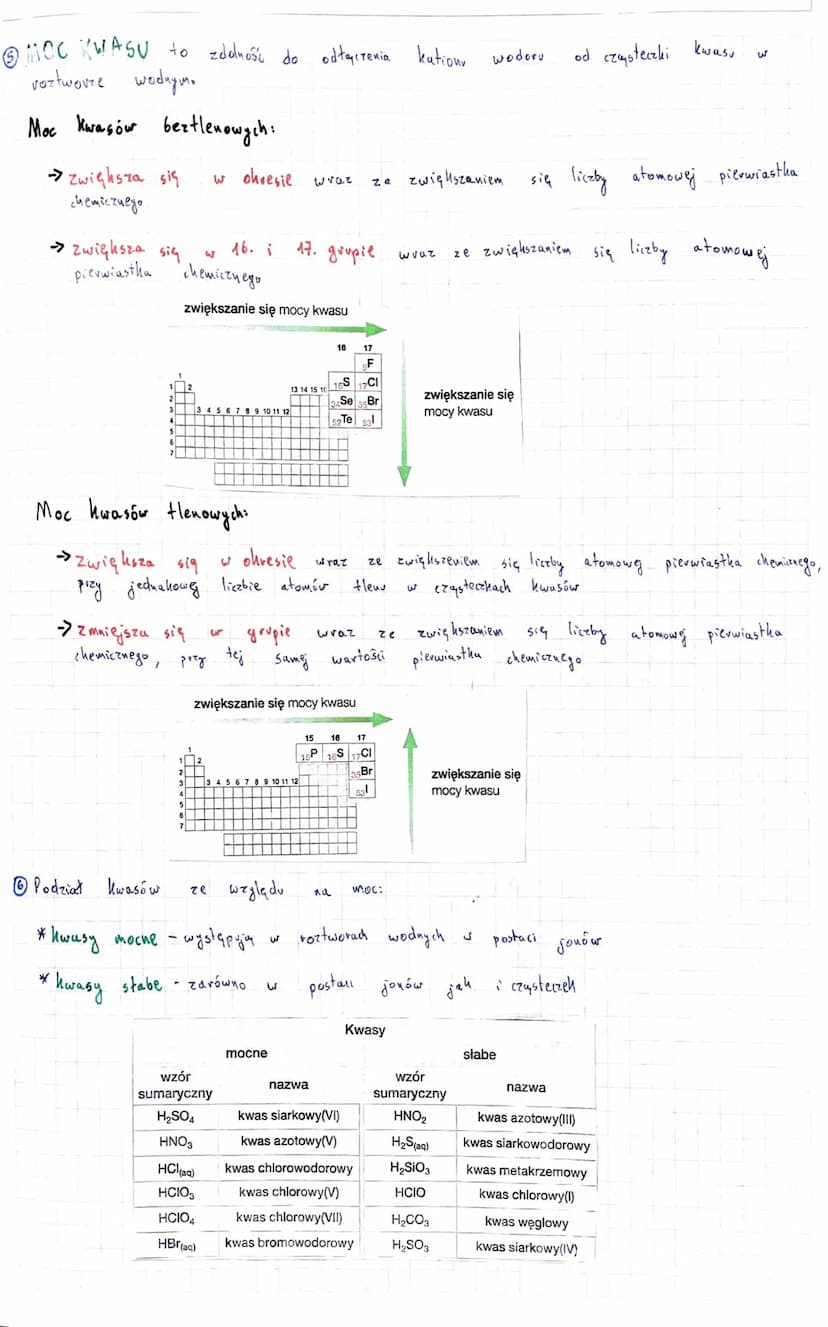 ⑤ MOC KWASU to zdolność do odłączenia kationu wodoru od cząsteczki kwasu w
roztworze wodnym.
Moc kwasów beztlenowych:
→ zwiększa się w okresie wraz ze zwiększaniem się liczby atomowej pierwiastka
chemicznego
→ zwiększa się w 16. i 17. grupie wraz ze zwiększaniem się liczby atomowej
pierwiastka chemicznego
zwiększanie się mocy kwasu
16 17
9F
1
1 2 13 14 15 16 16S 17Cl
2
34Se 35Br
3 3 4 5 6 7 8 9 10 11 12
4 52Te 53I
5
6
7
zwiększanie się
mocy kwasu
Moc kwasów tlenowych:
→ zwiększa się w okresie wraz ze zwiększeniem się liczby atomowej pierwiastka chemicznego,
przy jednakowej liczbie atomów tlenu w cząsteczkach kwasów
→ zmniejsza się w grupie wraz ze zwiększaniem się liczby atomowej pierwiastka
chemicznego, przy tej samej wartości pierwiastka chemicznego
zwiększanie się mocy kwasu
15 16 17
1
15P 16S 17Cl
1 2
2 35Br
3 3 4 5 6 7 8 9 10 11 12
4 53I
5
6
7
zwiększanie się
mocy kwasu
⑥ Podział kwasów ze względu na moc:
* kwasy mocne - występują w roztworach wodnych w postaci jonów
* kwasy słabe - zarówno w postaci jonów jak i cząsteczek
Kwasy
mocne słabe
wzór sumaryczny nazwa wzór sumaryczny nazwa
H₂SO₄ kwas siarkowy(VI) HNO₂ kwas azotowy(III)
HNO₃ kwas azotowy(V) H₂S(aq) kwas siarkowodorowy
HCl(aq) kwas chlorowodorowy H₂SiO₃ kwas metakrzemowy
HClO₃ kwas chlorowy(V) HClO kwas chlorowy(I)
HClO₄ kwas chlorowy(VII) H₂CO₃ kwas węglowy
HBr(aq) kwas bromowodorowy H₂SO₃ kwas siarkowy(IV)